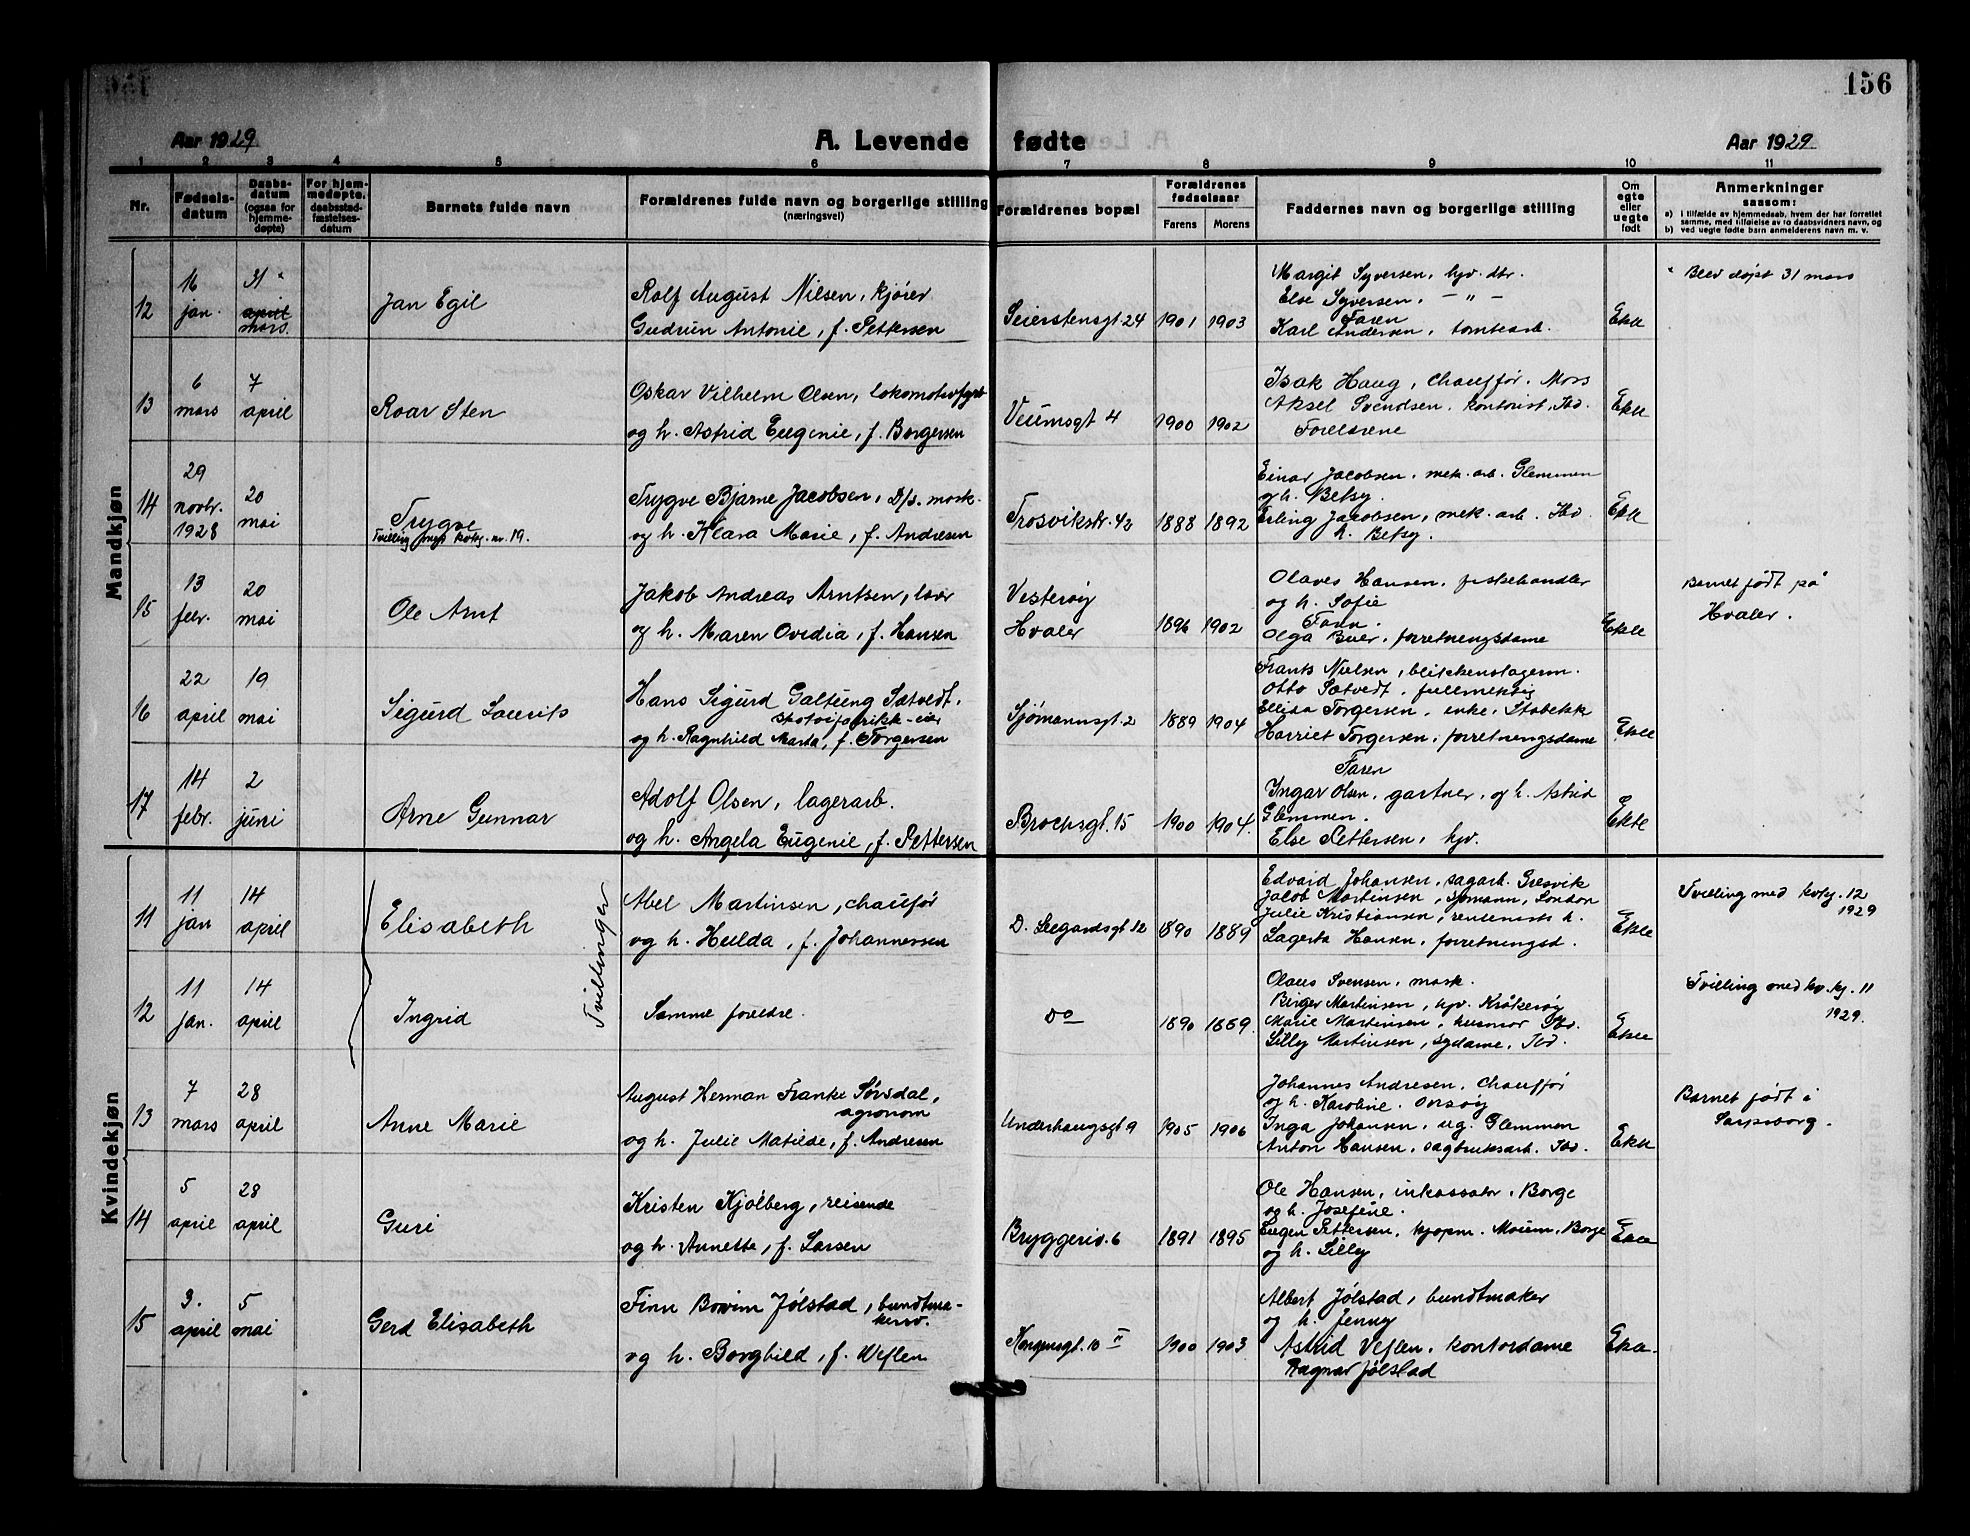 156
Aar 1929
A. Levende fødte
Aar 1929
1 2 3 4 5 6 7 8 9 10 11
Nr.
Fødsels-
datum
Daabs-
datum
(ogsaa for
hjemme-
døpte)
For hjem-
medøpte,
daabsstad-
fæstelses-
datum
Barnets fulde navn
Forældrenes fulde navn og borgerlige stilling
(næringsvei)
Forældrenes bopæl
Forældrenes
fødselsaar
Farens Morens
Faddernes navn og borgerlige stilling
Om
egte
eller
uegte
født
Anmerkninger
saasom:
a) i tilfælde av hjemmedaab, hvem der har forrettet
samme, med tilføielse av to daabsvidners navn, og
b) ved uegte fødte barn anmelderens navn m. v.
Mandkjøn
12
16
jan.
31
april
mars.
Jan Egil
Rolf August Nilsen, kjører
Gudrun Antonie, f. Pettersen
Seierstensgt. 24
1901 1903
Margit Syversen, hjv. dtr.
Else Syversen, — " —
Faren
Karl Andersen, tomtearb.
Ekte
Blev døpt 31 mars
13
6
mars
7
april
Roar Sten
Oskar Vilhelm Olsen, lokomotivfyrb
og h. Astrid Eugenie, f. Borgersen
Veumsgt 4
1900 1902
Isak Haug, chauffør. Moss
Aksel Svendsen, kontorist, Ibd.
Foreldrene
Ekte
14
29
novbr.
1928
20
mai
Trygve
Tvilling med kvkj. nr. 19.
Trygve Bjarne Jacobsen, D/s. mask.
og h. Klara Marie, f. Andresen
Trosvikstr. 42
1888 1892
Einar Jacobsen, mek. arb. Glemmen
og h. Betsy.
Erling Jacobsen, mek. arb. Ibd.
h. Betsy.
Ekte
15
13
febr.
20
mai
Ole Arnt
Jakob Andreas Arntsen, lods
og h. Maren Ovidia, f. Hansen
Vesterøy
Hvaler
1896 1902
Olaves Hansen, fiskehandler
og h. Sofie
Faren.
Olga Buer, forretningsdame
Ekte
Barnet født på
Hvaler.
16
22
april
19
mai
Sigurd Laurits
Hans Sigurd Galtung Sætvedt,
skotøifabrikk-eier
og h. Ragnhild Marta, f. Torgersen
Sjømannsgt. 2
1889 1904
Frants Nielsen,
Otto Sætvedt, fullmektig
Ellida Torgersen, enke, Stabekk
Harriet Torgersen, forretningsdame
Ekte
17
14
febr.
2
juni
Arne Gunnar
Adolf Olsen, lagerarb.
og h. Angela Eugenie, f. Pettersen
Brochsgt. 15
1900 1904.
Faren
Ingar Olsen, gartner, og h. Astrid
Glemmen.
Else Pettersen, hjv.
Ekte
Kvindekjøn
11
11
jan
14
april
Elisabeth
Tvillinger
Abel Martinsen, chaufør
og h. Hulda, f. Johannessen
D. Leegardsgt 12
1890 1889
Edvard Johansen, sagarb. Gresvik
Jacob Martinsen, sjømann, London
Julie Kristiansen, rentenists h.
Lagerta Hansen, forretningsd.
Ekte
Tvilling med kvkj. 12
1929
12
11
jan.
14
april
Ingrid
Samme foreldre.
do
1890 1889.
Olaus Svensen, mask.
Birger Martinsen, hjv. Kråkerøy
Marie Martinsen, husmor Ibd.
Lilly Martinsen, sydame, Ibd.
Ekte
Tvilling med kv.kj. 11
1929.
13
7
mars
28
april
Anne Marie
August Herman Franke Sørsdal,
agronom
og h. Julie Matilde, f. Andresen
Underhaugsgt 9
1905 1906
Johannes Andresen, chauffør
og h. Karoline. Onsøy
Inga Johansen, ug. Glemmen
Anton Hansen, sagbruksarb. Ibd.
Ekte
Barnet født i
Sarpsborg.
14
5
april
28
april
Guri
Kristen Kjølberg, reisende
og h. Annette, f. Larsen
Bryggeriv. 6
1891 1895
Ole Hansen, inkassator, Borge
og h. Josefine.
Eugen Pettersen, kjøpm. Moum, Borge
og h. Lilly
Ekte
15
3.
april
5
mai
Gerd Elisabeth
Finn Bovim Jølstad, bundtma-
kersv.
og h. Borghild, f. Weflen
Kongensgt. 10 II
1900 1903
Albert Jølstad, bundtmaker
og h. Jenny
Astrid Veflen, kontordame
Ragnar Jølstad
Ekte.